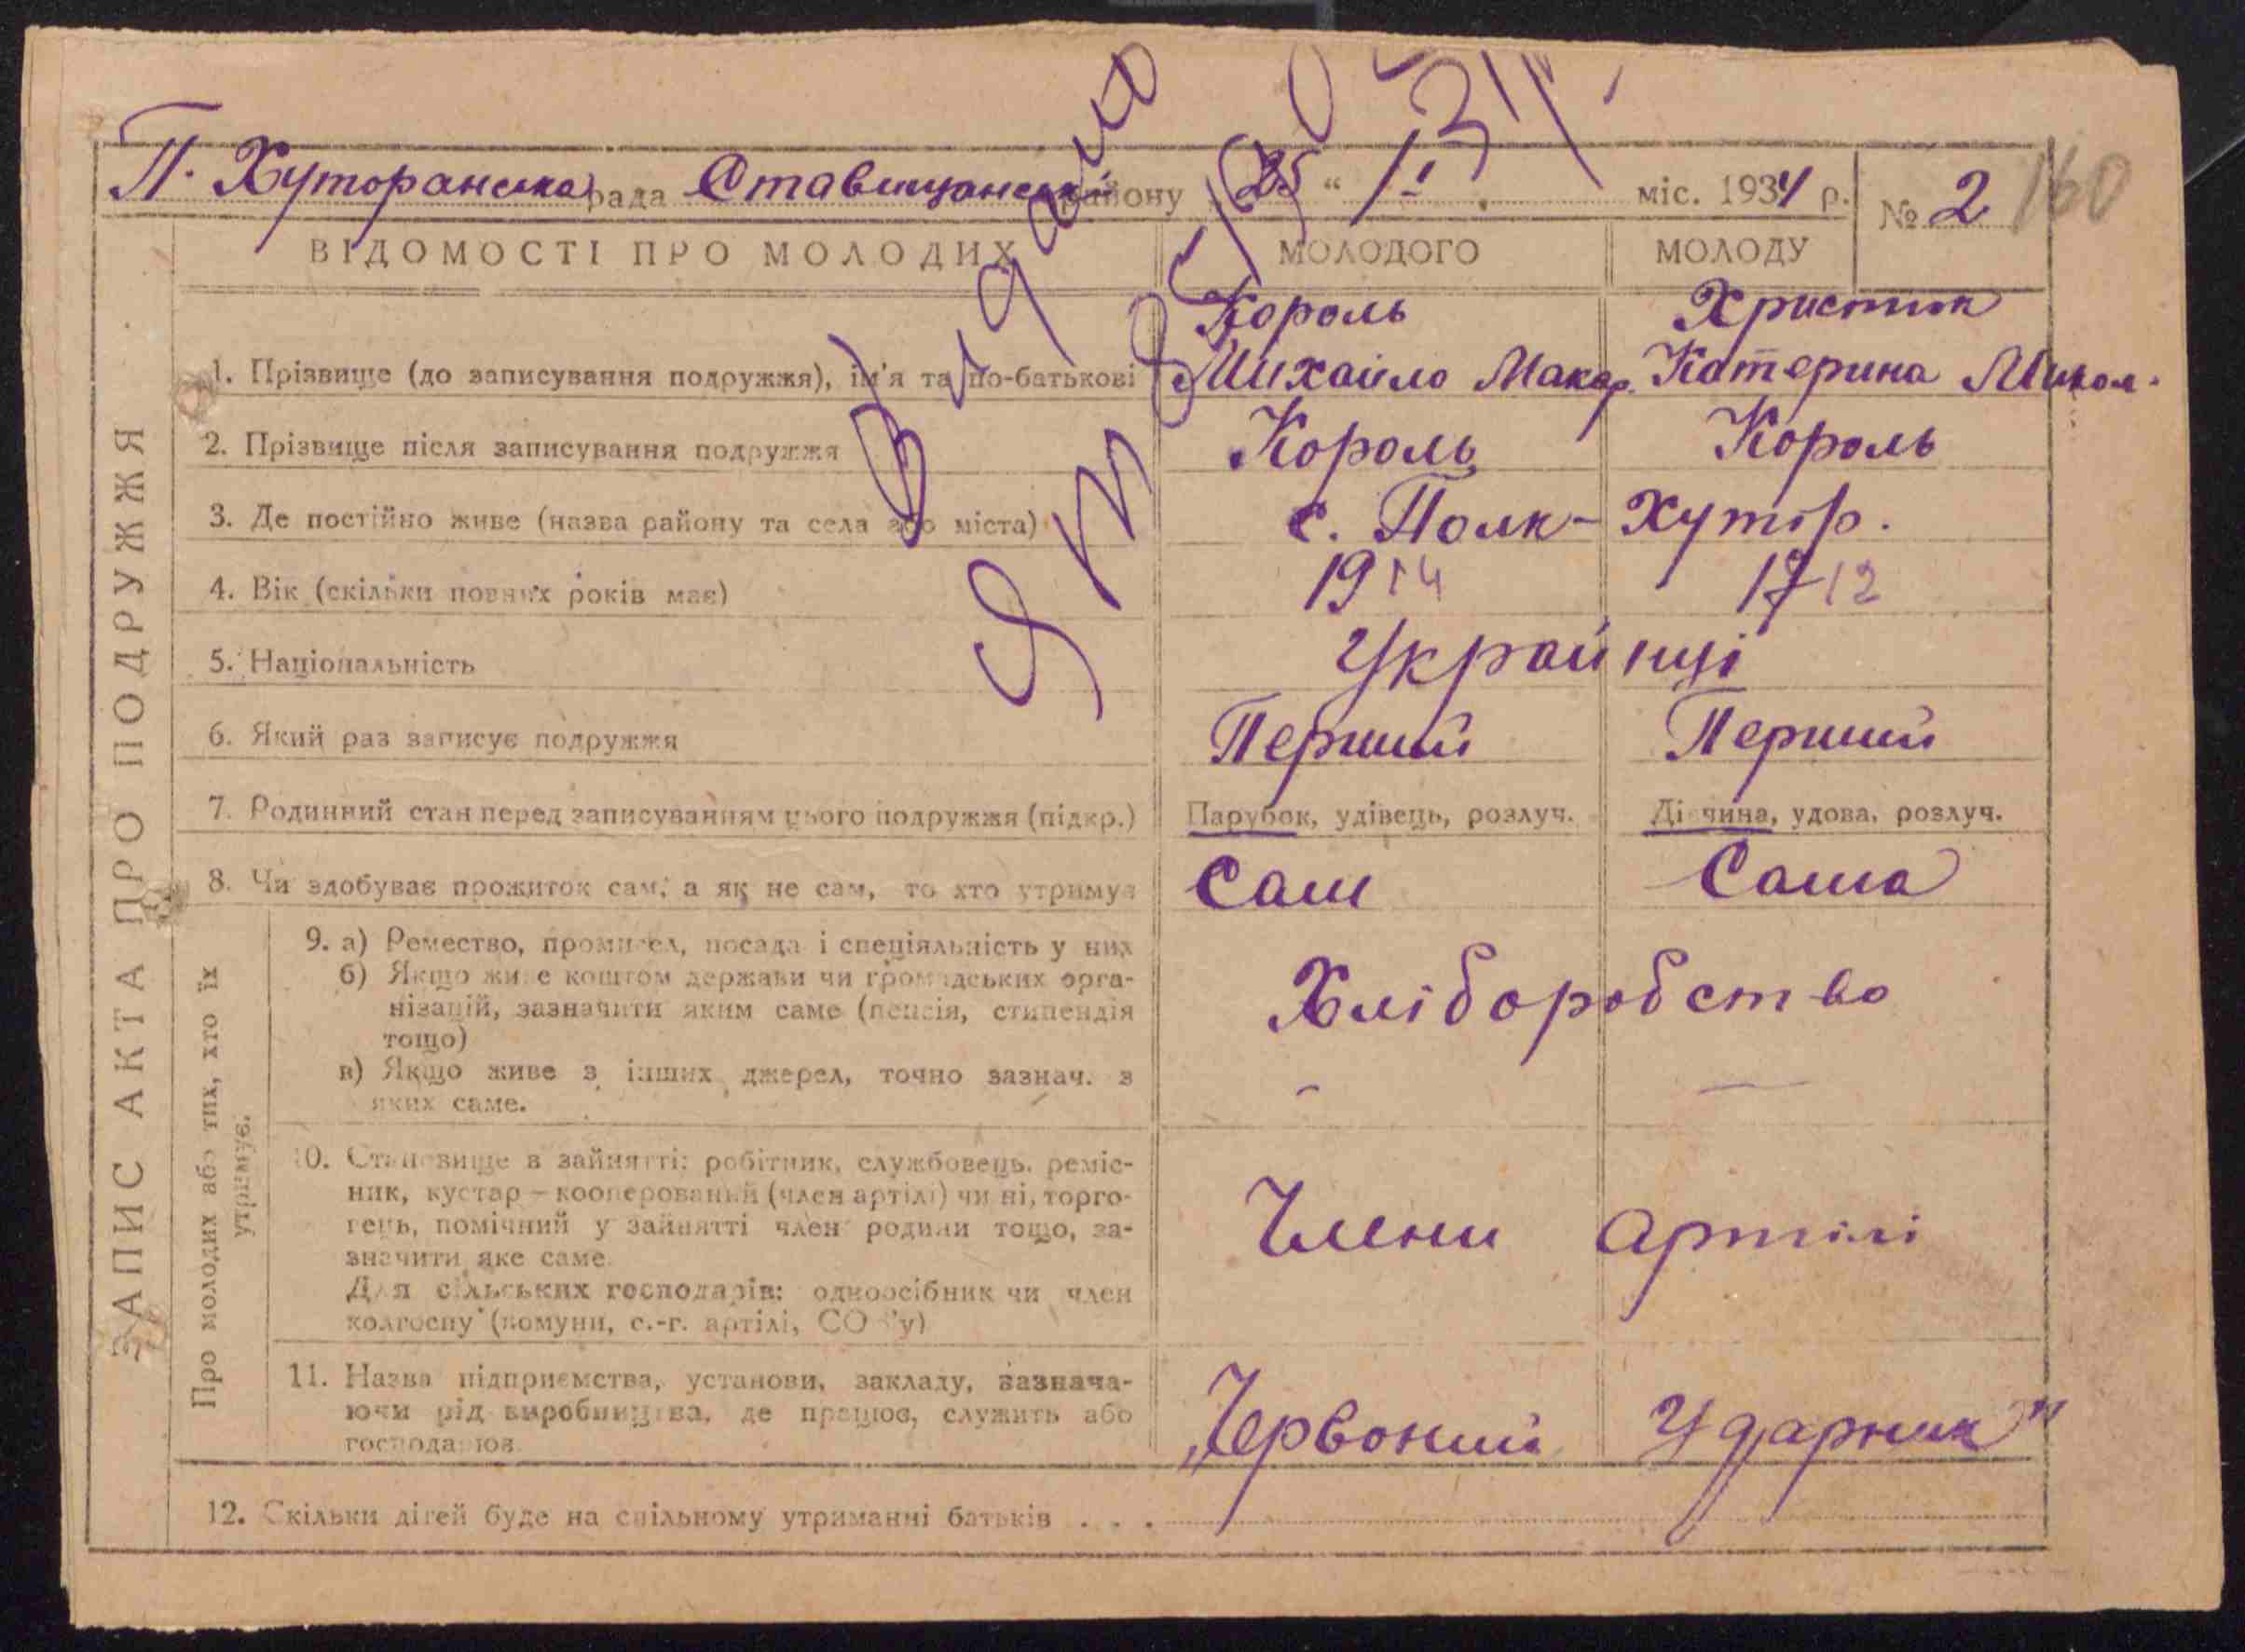 П. Хуторанська рада Ставищанськ району "25" 1 міс. 1934 р. № 2 160
ВІДОМОСТІ ПРО МОЛОДИХ МОЛОДОГО МОЛОДУ
Видано
ЗАПИС АКТА ПРО ПОДРУЖЖЯ
Король Христюк
1. Прізвище (до записування подружжя), ім'я та по-батькові Михайло Макар. Катерина Микол.
2. Прізвище після записування подружжя Король Король
3. Де постійно живе (назва району та села або міста) с. Полк-Хутор.
4. Вік (скільки повних років має) 1914 1912
5. Національність Українці
6. Який раз записує подружжя Перший Перший
7. Родинний стан перед записуванням цього подружжя (підкр.) Парубок, удівець, розлуч. Дівчина, удова, розлуч.
8. Чи здобуває прожиток сам, а як не сам, то хто утримує Сам Сама
Про молодих або тих, хто їх
утримує.
9. а) Ремество, промисел, посада і спеціяльність у них
б) Якщо живе коштом держави чи громадських орга-
нізацій, зазначити яким саме (пенсія, стипендія Хліборобство
тощо)
в) Якщо живе з інших джерел, точно зазнач. з - —
яких саме.
10. Становище в зайнятті: робітник, службовець, реміс-
ник, кустар – кооперований (член артілі) чи ні, торго-
гець, помічний у зайнятті член родини тощо, за- Члени артілі
значити яке саме.
Для сільських господарів: одноосібник чи член
колгоспу (комуни, с.-г. артілі, СОЗ'у)
11. Назва підприємства, установи, закладу, зазнача-
ючи рід виробництва, де працює, служить або „Червоний Ударник"
господарює.
12. Скільки дітей буде на спільному утриманні батьків . . .